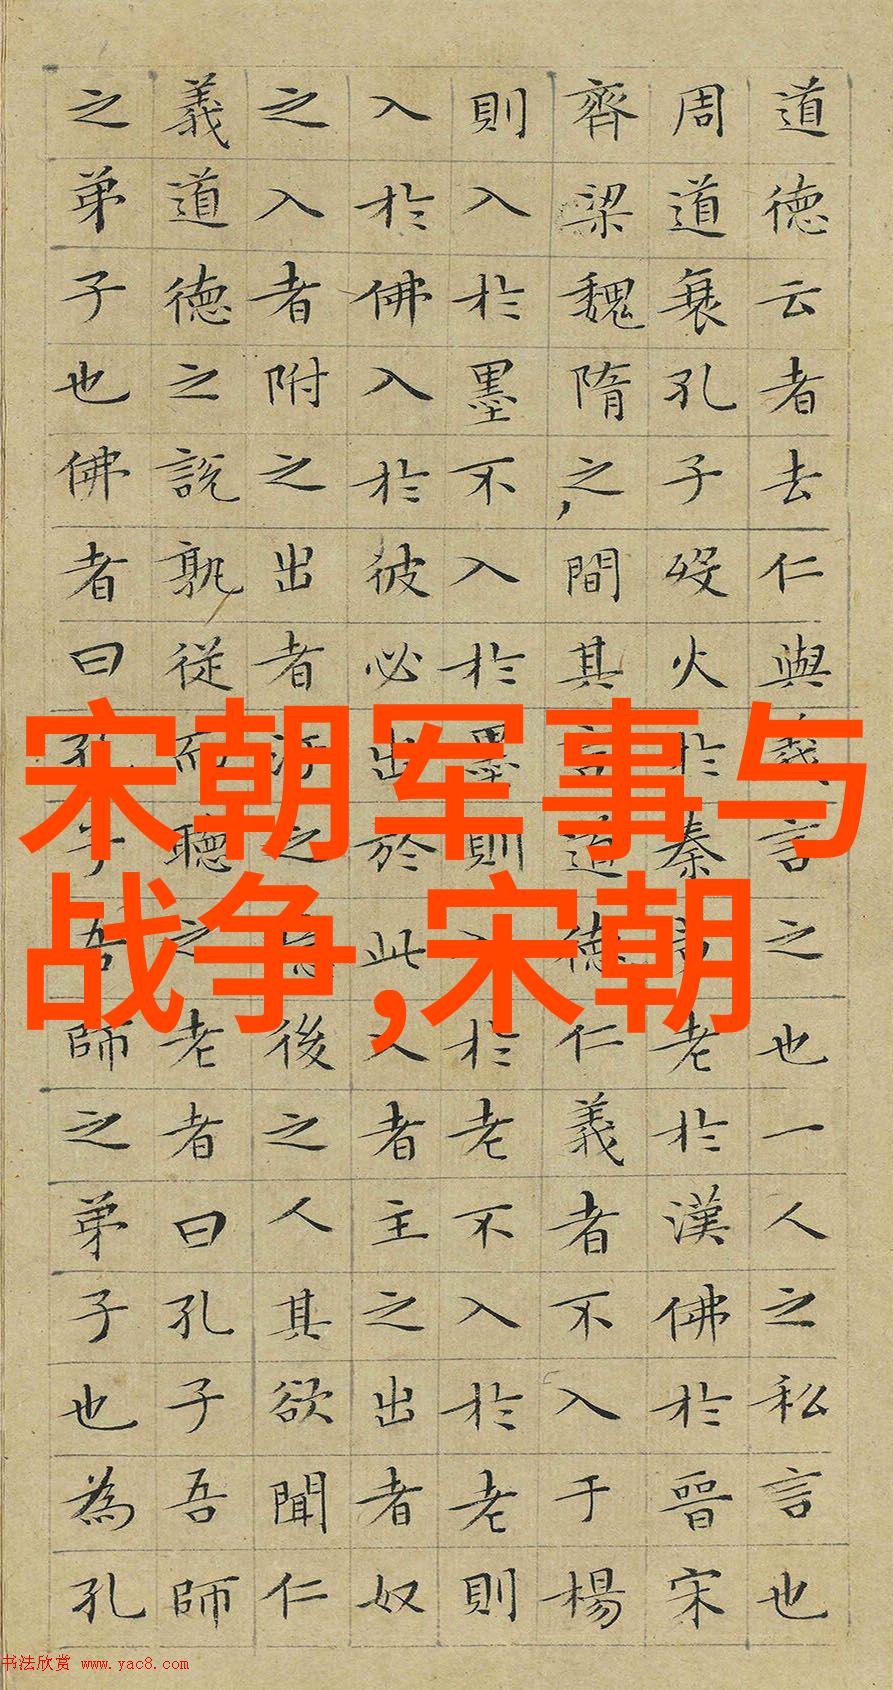 宋朝军事与
战争,宋朝
道德云者去仁與義言之也一人之私言也
周道衰孔子歿火於秦老於漢佛於晉宋
齊梁魏隋之間其言道德仁義者不入于楊
則入於墨不入於墨則入於老不入於老則
入於佛入於彼必出於此入者主之出者奴
之入者附之出者汙之噫後之人其欲聞仁
義道德之説孰從而聽之老者曰孔子吾師
之弟子也佛者曰孔子吾師之弟子也為孔
书法欣赏 www.yac8.com